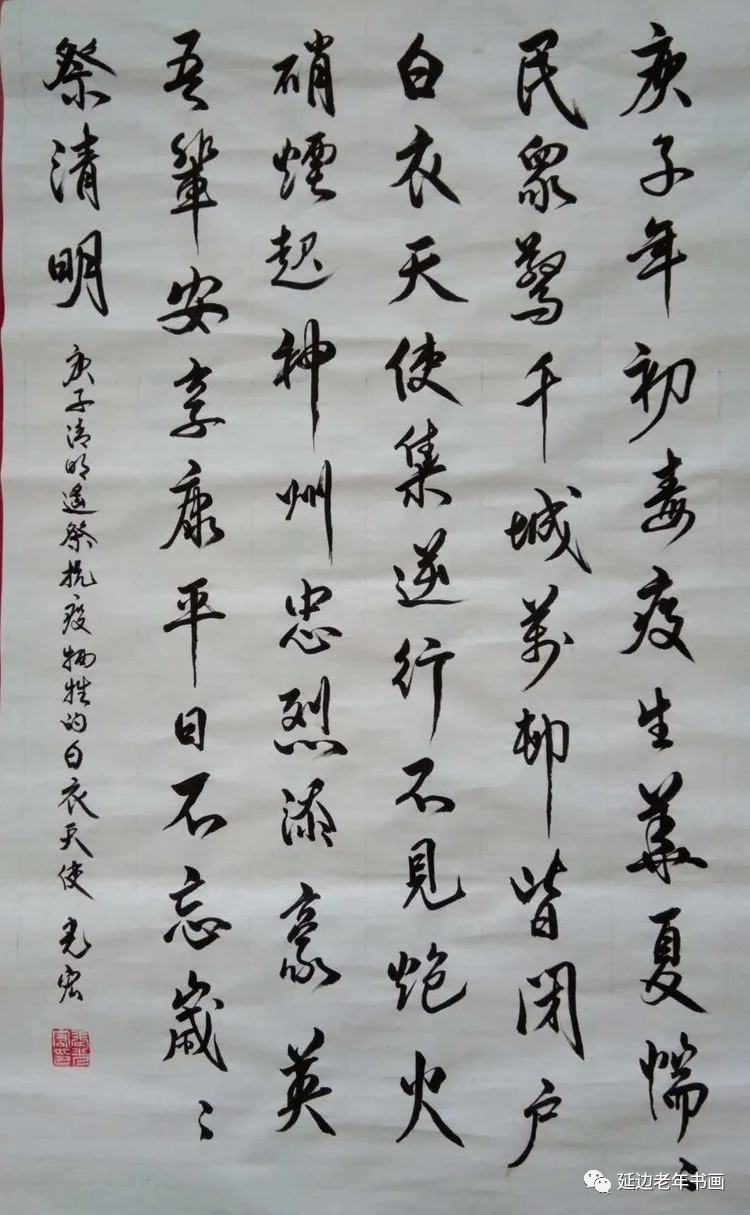 庚子年初毒疫生華夏惴〻
民眾驚千城萬邨皆閉户
白衣天使集逆行不見炮火
硝煙起神州忠烈添豪英
吾輩安享康平日不忘歲〻
祭清明
庚子清明遥祭抗疫牺牲的白衣天使 光宏
延边老年书画